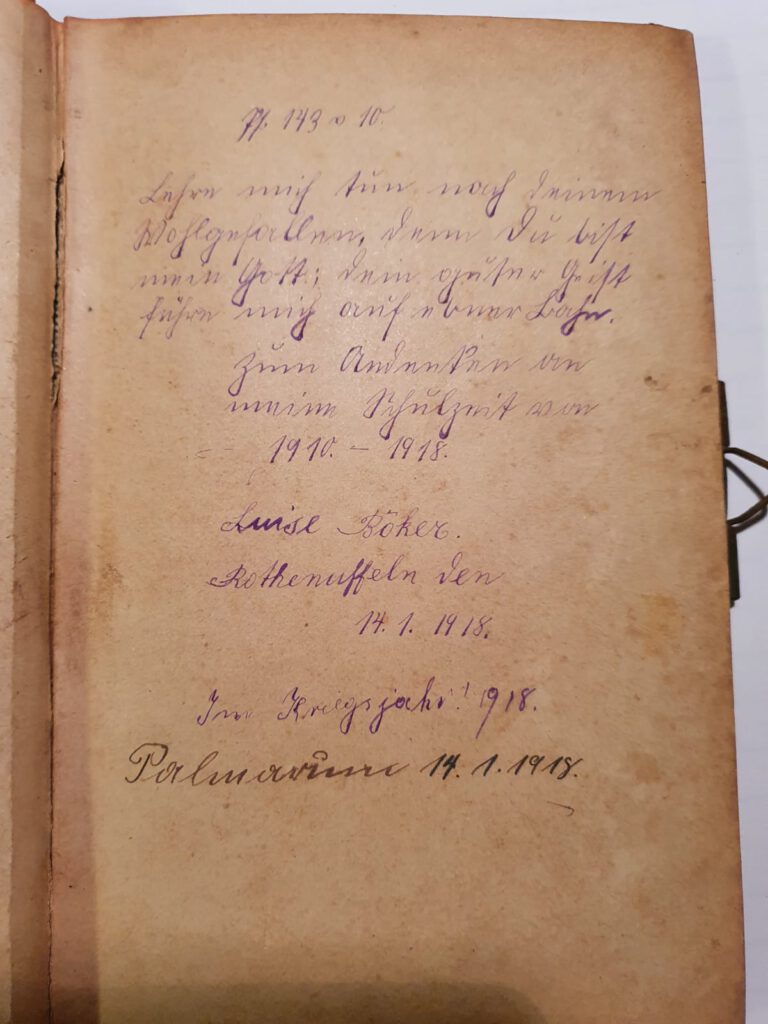 Ps. 143 v 10.
Lehre mich tun nach deinem
Wohlgefallen, denn Du bist
mein Gott; dein guter Geist
führe mich auf ebner Bahn.
zum Andenken an
meine Schulzeit von
1910. – 1918.
Luise Böker.
Rothenuffeln den
14. 1. 1918.
Im Kriegsjahr! 1918.
Palmarum 14. 1. 1918.